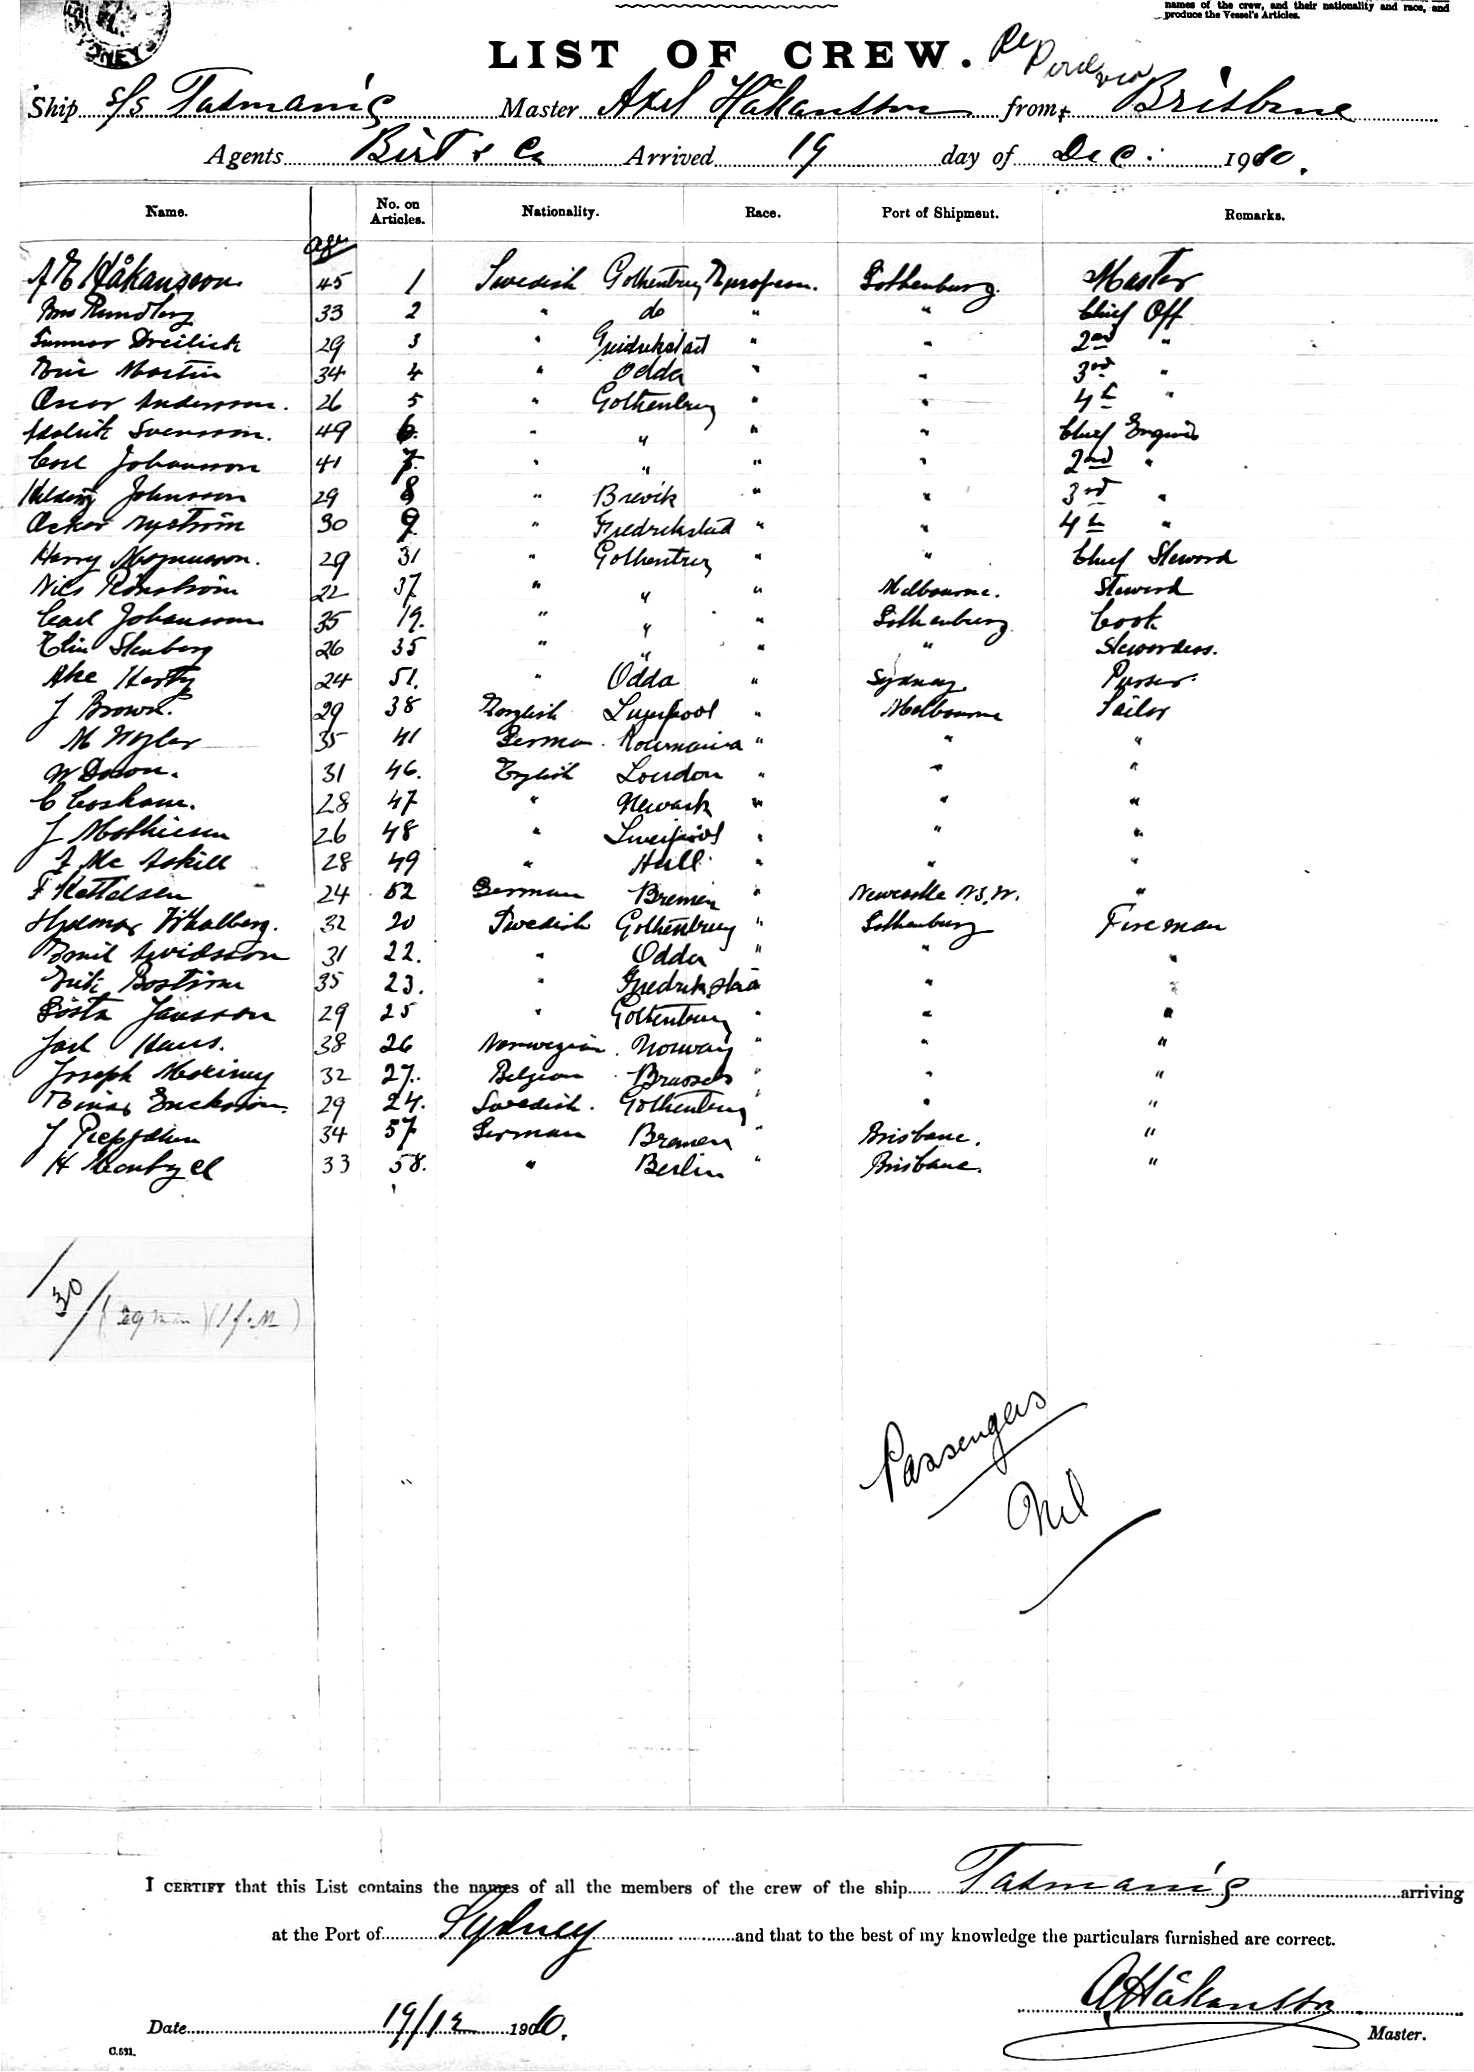 names of the crew, and their nationality and race, and
produce the Vessel's Articles.
SYDNEY
LIST OF CREW.
Ship s/s Tasmanic Master Axel Håkansson from Brisbane
Agents Birt & Co Arrived 19 day of Dec. 1910.
Name. Age No. on Articles. Nationality. Race. Port of Shipment. Remarks.
A E Håkansson 45 1 Swedish Gothenburg European. Gothenburg. Master
33 2 " do " " Chief Off
Gunnar 29 3 " " " 2nd "
Martin 34 4 " Odda " " 3rd "
Oscar Andersson. 26 5 " Gothenburg " " 4th "
Svensson. 49 6. " " " " Chief Engin
Carl Johansson 41 7. " " " " 2nd "
Johnsson 29 8 " Brevik " " 3rd "
Oskar Nyström 30 9 " Fredrikstad " " 4th "
Harry Magnusson. 29 31 " Gothenburg " " Chief Steward
Nils Rönström 22 37 " " " Melbourne. Steward
Carl Johansson 35 19. " " " Gothenburg Cook
Elin Stenberg 26 35 " " " " Stewardess.
Ake 24 51. " Odda " Sydney Purser.
J Brown. 29 38 English Liverpool " Melbourne Sailor
M 35 41 German. Roumania " " "
W 31 46. English London " " "
C Cosham. 28 47 " Newark " " "
J Mathiesen 26 48 " Liverpool " " "
Mc Askill 28 49 " Hull " " "
F Kettelsen 24 52 German Bremen " Newcastle N.S.W. "
32 20 Swedish Gothenburg " Gothenburg Fireman
Emil Arvidsson 31 22. " Odda " " "
Erik Boström 35 23. " Fredrikstad " " "
Gösta Jansson 29 25 " Gothenburg " " "
Hans. 38 26 Norwegian. Norway " " "
Joseph 32 27. Belgian Brussels " " "
Einar Erickson. 29 24. Swedish. Gothenburg " " "
J 34 57 German Bremen " Brisbane. "
H 33 58. " Berlin " Brisbane. "
/30/ (29 m )(1 f.m)
Passengers
Nil
I CERTIFY that this List contains the names of all the members of the crew of the ship Tasmanic arriving
at the Port of Sydney and that to the best of my knowledge the particulars furnished are correct.
A Håkansson
Date 19/12 1910. Master.
C.531.